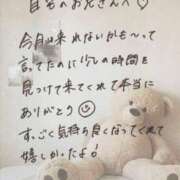 自宅のお兄さんへ♡
今月は来れないかも〜って
言ってたのに少しの時間を
見つけて来てくれて本当に
ありがとう
すっごく気持ち良くなってくれて
嬉しかったよ!